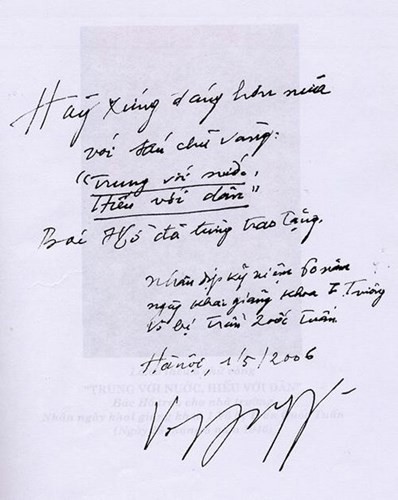 Hãy xứng đáng hơn nữa
với sáu chữ vàng:
"Trung với nước,
Hiếu với dân"
Bác Hồ đã từng trao tặng.
Nhân dịp kỷ niệm 60 năm
ngày khai giảng khoá I Trường
Võ bị Trần Quốc Tuấn
Hà nội, 1/5/2006
"TRUNG VỚI NƯỚC, HIẾU VỚI DÂN"